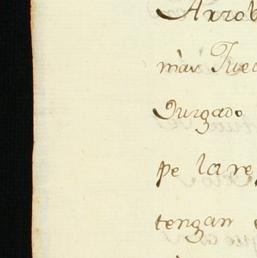 Arrob
màs Juec
Juzgado
pe la re
tengan